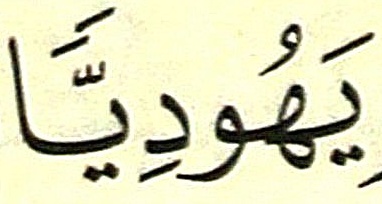 يَهُودِيًّا